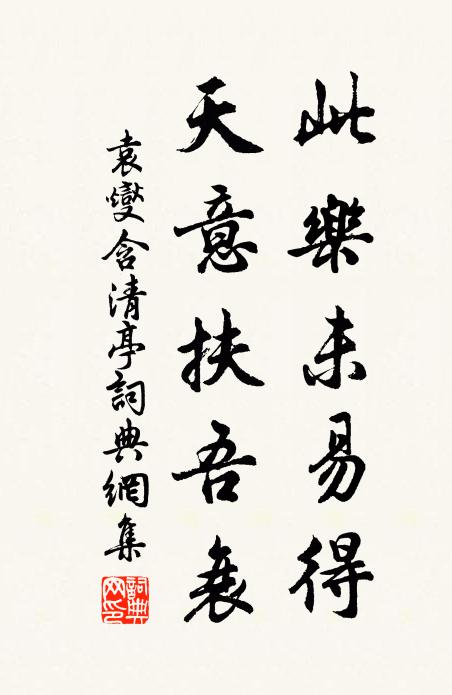 此樂未易得
天意扶吾衰
袁燮含清亭詞典網集
詞典网印